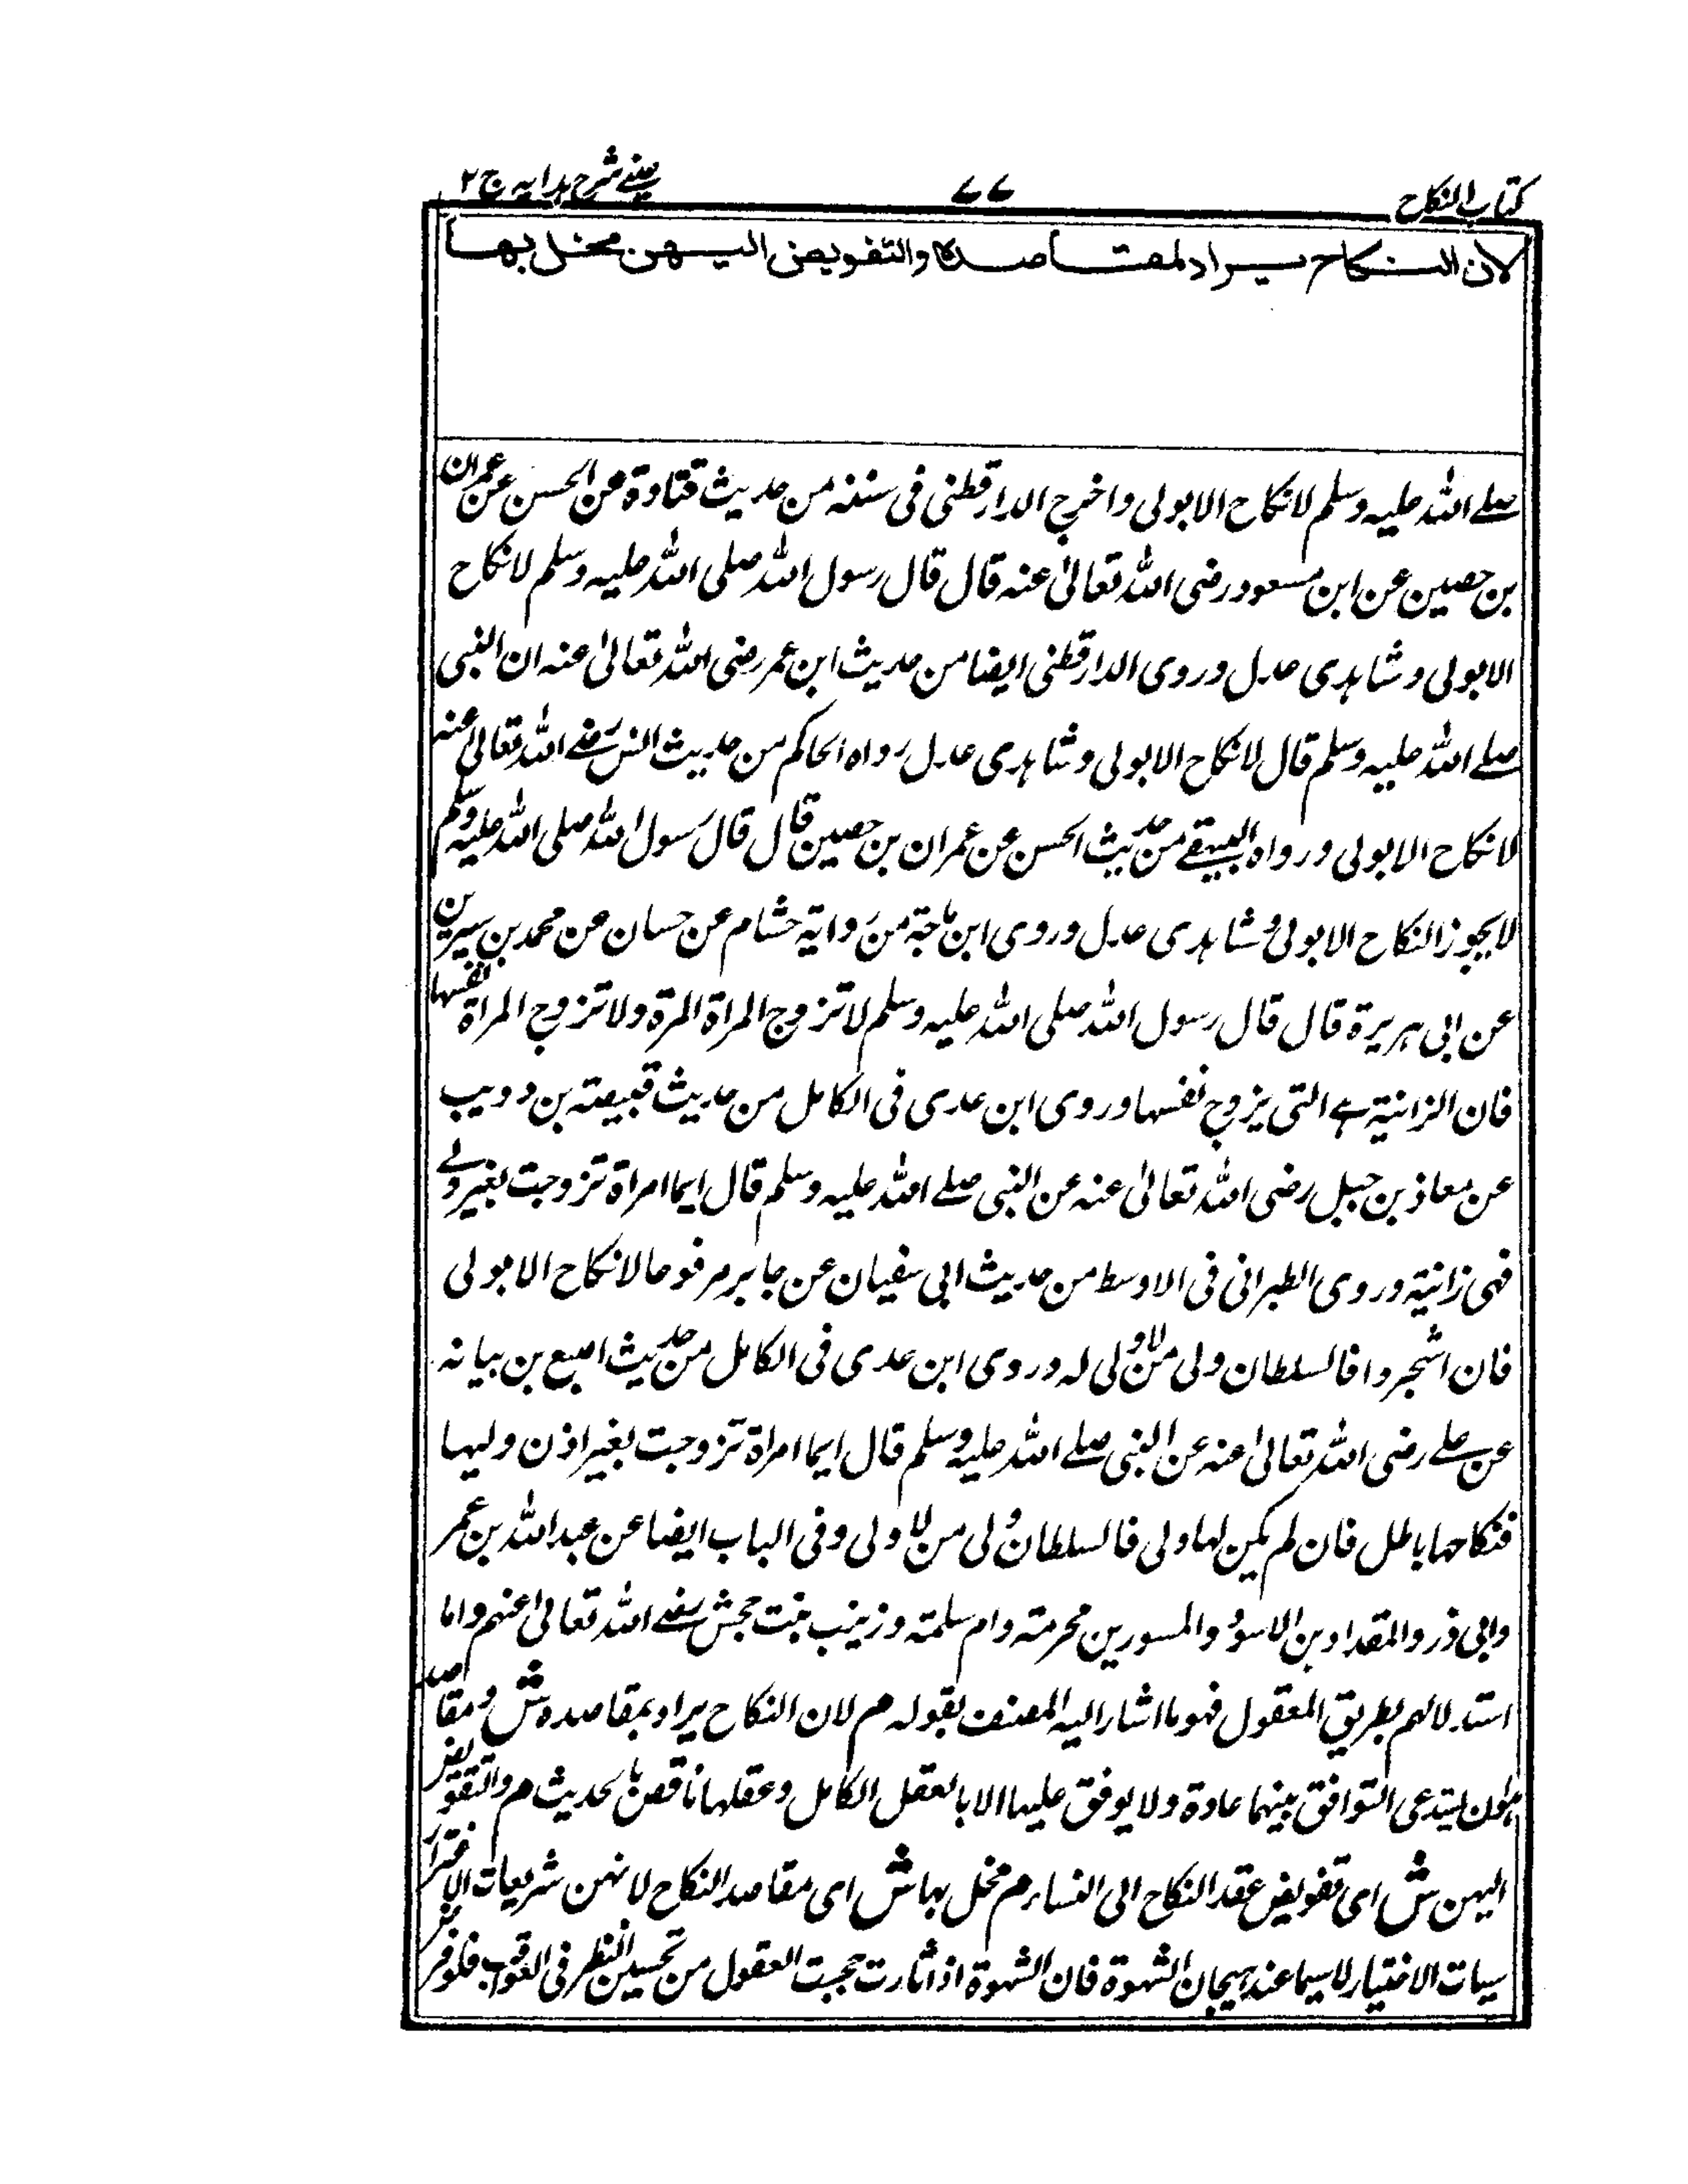 كتاب النكاح
٧٧
عينى شرح هدايه ج ٢
لان النكاح يراد لمقاصده والتفويض اليهن مخل بها
صلے الله عليه وسلم لانكاح الابولى واخرج الدارقطنى فى سننه من حديث قتادة عن الحسن عن عمران
بن حصين عن ابن مسعود رضى الله تعالىٰ عنه قال قال رسول الله صلى الله عليه وسلم لانكاح
الابولى وشاهدى عدل وروى الدارقطنى ايضا من حديث ابن عمر رضى الله تعالىٰ عنه ان النبى
صلے الله عليه وسلم قال لانكاح الابولى وشاهدى عدل رواه الحاكم من حديث انس رضے الله تعالىٰ عنه
لانكاح الابولى ورواه البيهقے من حديث الحسن عن عمران بن حصين قال قال رسول الله صلى الله عليه وسلم
لايجوز النكاح الابولى وشاهدى عدل وروى ابن ماجة من رواية حشام عن حسان عن محمد بن سيرين
عن ابى هريرة قال قال رسول الله صلى الله عليه وسلم لاتزوج المراة المرة ولاتزوج المراة نفسها
فان الزانية هے التى يزوج نفسها وروى ابن عدى فى الكامل من حديث قبيصته بن دويب
عن معاذ بن جبل رضى الله تعالىٰ عنه عن النبى صلے الله عليه وسلم قال ايما امراة تزوجت بغير ولے
فهى زانية وروى الطبرانى فى الاوسط من حديث ابى سفيان عن جابر مرفوعا لانكاح الابولى
فان اشجروا فالسلطان ولى من لاولى له وروى ابن عدى فى الكامل من حديث اصبع بن بيانه
عن علے رضى الله تعالىٰ عنه عن النبى صلے الله عليه وسلم قال ايما امراة تزوجت بغير اذن وليها
فنكاحها باطل فان لم يكن لها ولى فالسلطان ولى من لاولى وفى الباب ايضا عن عبد الله بن عمر
وابى ذر والمقداد بن الاسود والمسور بن محرمته وام سلمته وزينب بنت جحش رضے الله تعالىٰ عنهم واما
استدلالهم بطريق المعقول فهو ما اشار اليه المصنف بقوله م لان النكاح يراد بمقاصده ش ومقاصد
ليتدعى التوافق بينهما عادة ولايوفق عليها الا بالعقل الكامل وعقلها ناقص بالحديث م والتفويض
اليهن ش اى تفويض عقد النكاح الى النساء م مخل بها ش اى مقاصد النكاح لانهن شريعات
سيات الاختيار لاسيما عند هيجان الشهوة فان الشهوة اذا ثارت حجبت العقول من تحسين النظر فى العواقب